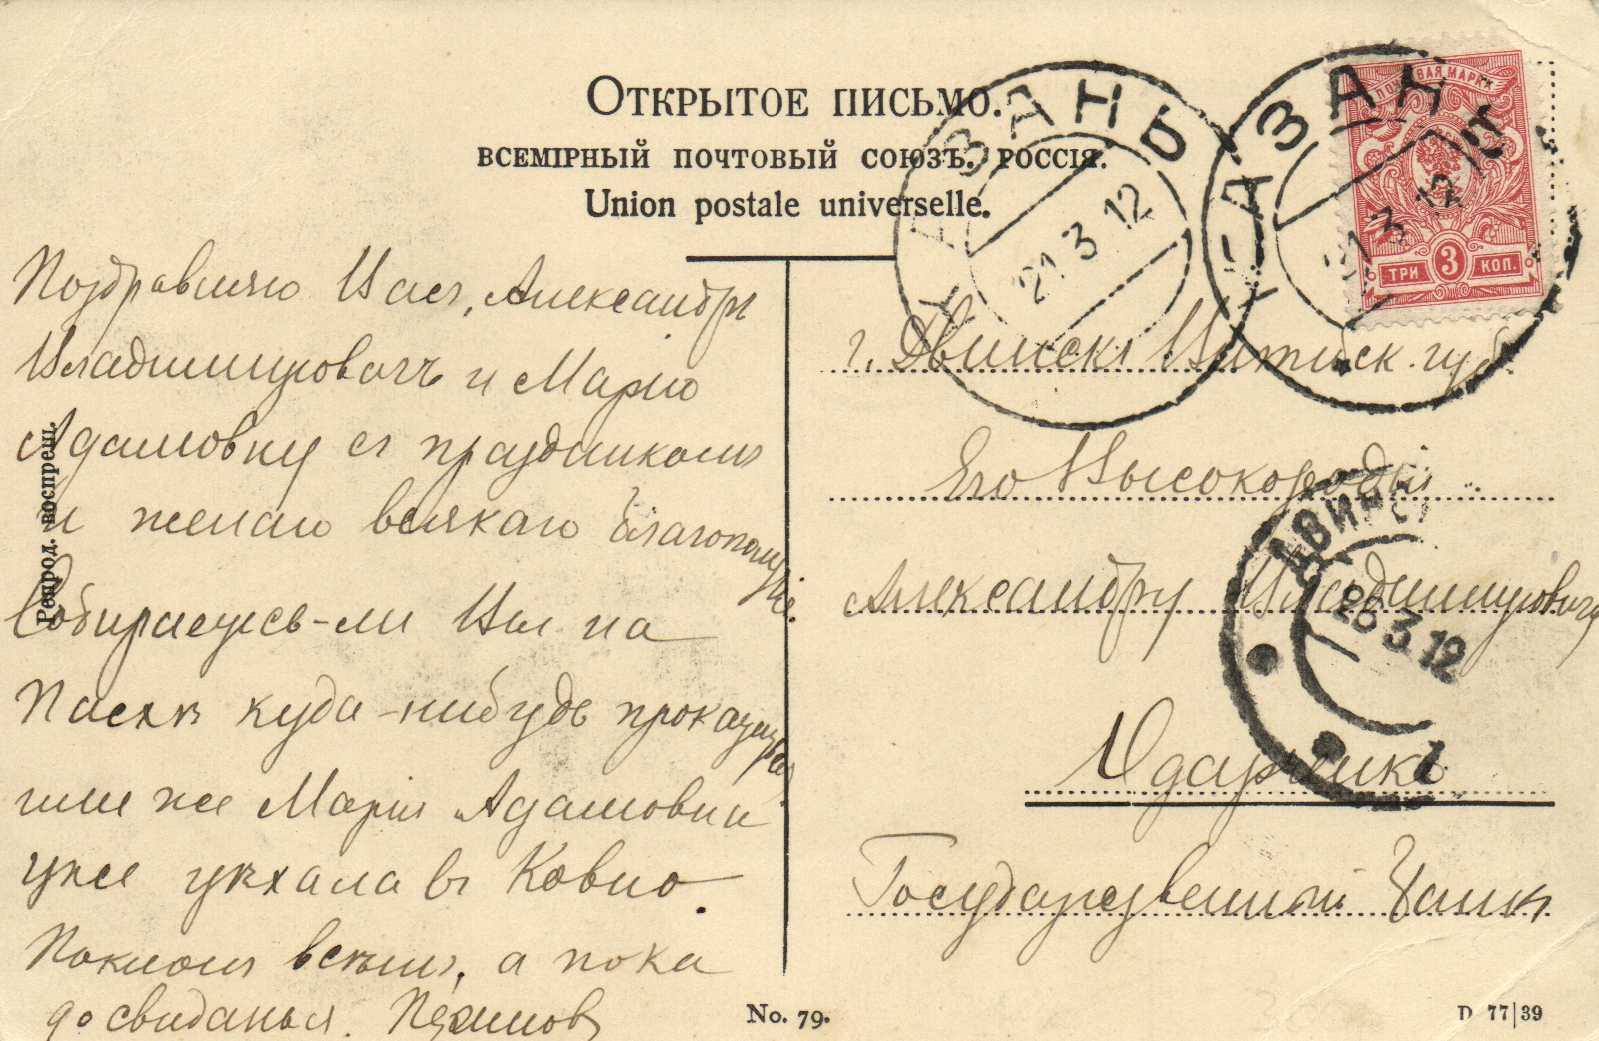 Открытое письмо.
ВСЕМІРНЫЙ ПОЧТОВЫЙ СОЮЗЪ. РОССІЯ.
Union postale universelle.
ПОЧТОВАЯ МАРКА
ТРИ 3 КОП.
КАЗАНЬ
21 3 12
КАЗАН
21 3 12
Поздравляю Васъ, Александръ
Владимировичъ и Марію
Адамовну съ праздникомъ
и желаю всякаго благополучія.
Собираетесь-ли Вы на
Пасхѣ куда-нибудь прокатиться
или же Марія Адамовна
уже уѣхала въ Ковно.
Поклонъ всѣмъ, а пока
до свиданья.
Репрод. воспрещ.
г. Двинскъ Витебск. губ.
Его Высокородію
Александру Владимировичу
Ударенко
Государственный банкъ
ДВИНСК
26 3 12
No. 79.
D 77|39